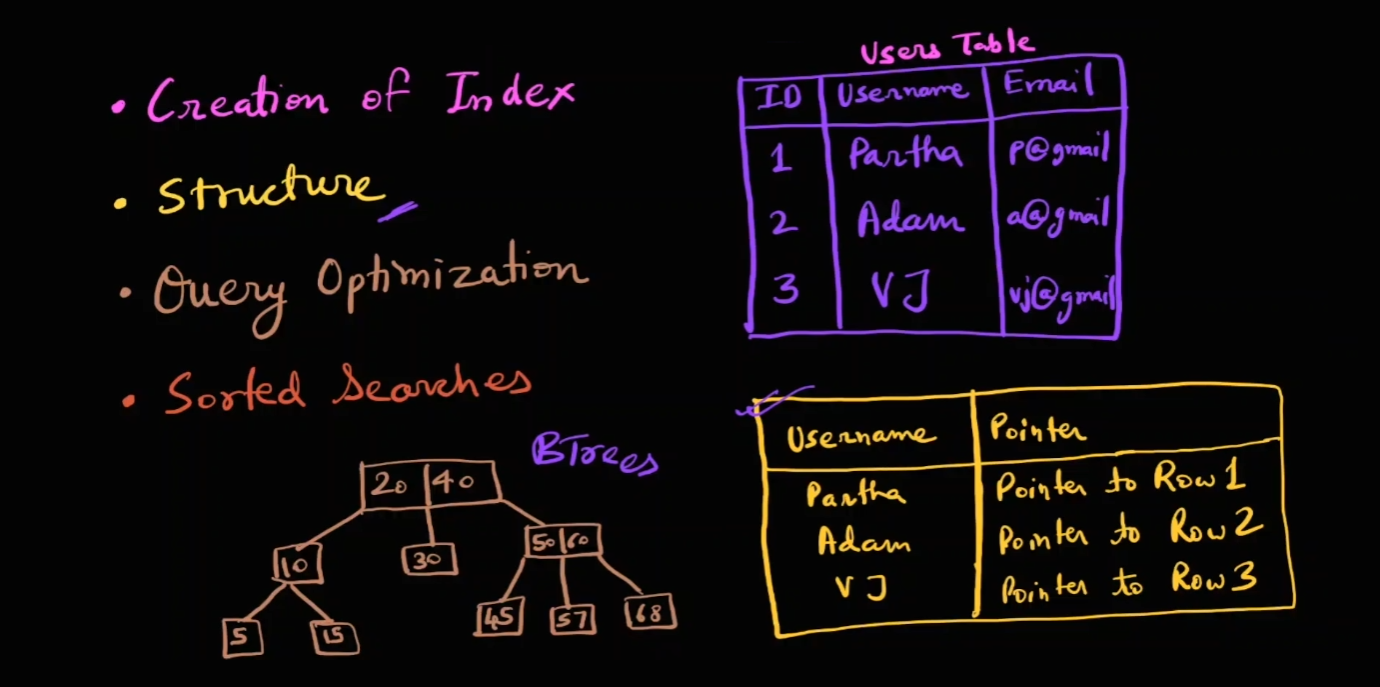 • Creation of Index
• Structure
• Query Optimization
• Sorted Searches
BTrees
20 40
10 30 50 60
5 15 45 57 68
Users Table
ID Username Email
1 Partha p@gmail
2 Adam a@gmail
3 VJ vj@gmail
Username Pointer
Partha Pointer to Row 1
Adam Pointer to Row 2
VJ Pointer to Row 3